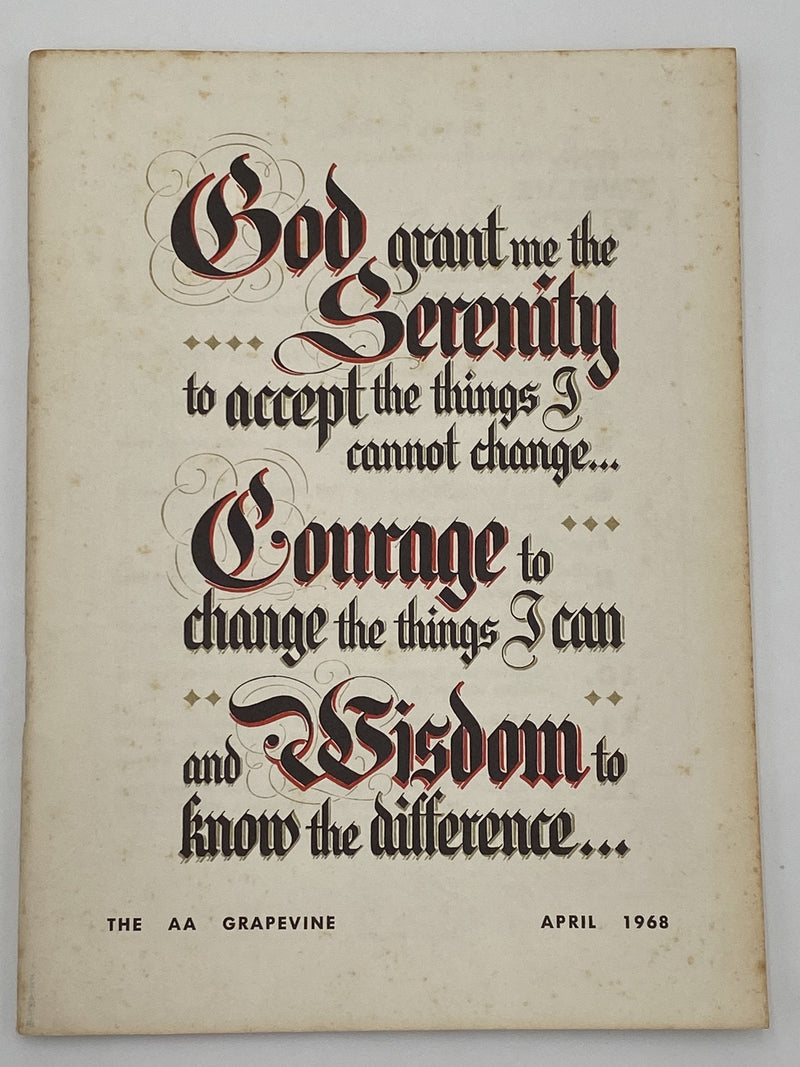 God grant me the
Serenity
to accept the things I
cannot change...
Courage to
change the things I can
and Wisdom to
know the difference...
THE AA GRAPEVINE APRIL 1968